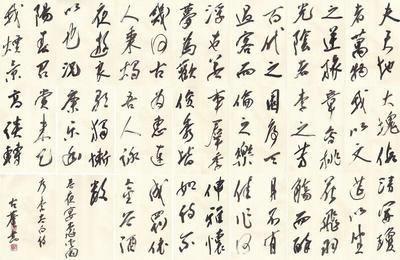 夫天地
者萬物
之逆旅
光陰者
百代之
過客而
浮生若
夢為歡
幾何古
人秉燭
夜遊良
以也況
陽春召
我煙景
大塊假
我以文
章會桃
李之芳
園序天
倫之樂
事群季
俊秀皆
為惠連
吾人詠
歌獨慚
康樂幽
賞未已
高談轉
清開瓊
筵以坐
花飛羽
觴而醉
月不有
佳作何
伸雅懷
如詩不
成罰依
金谷酒
數
春夜宴桃李園
序李太白作